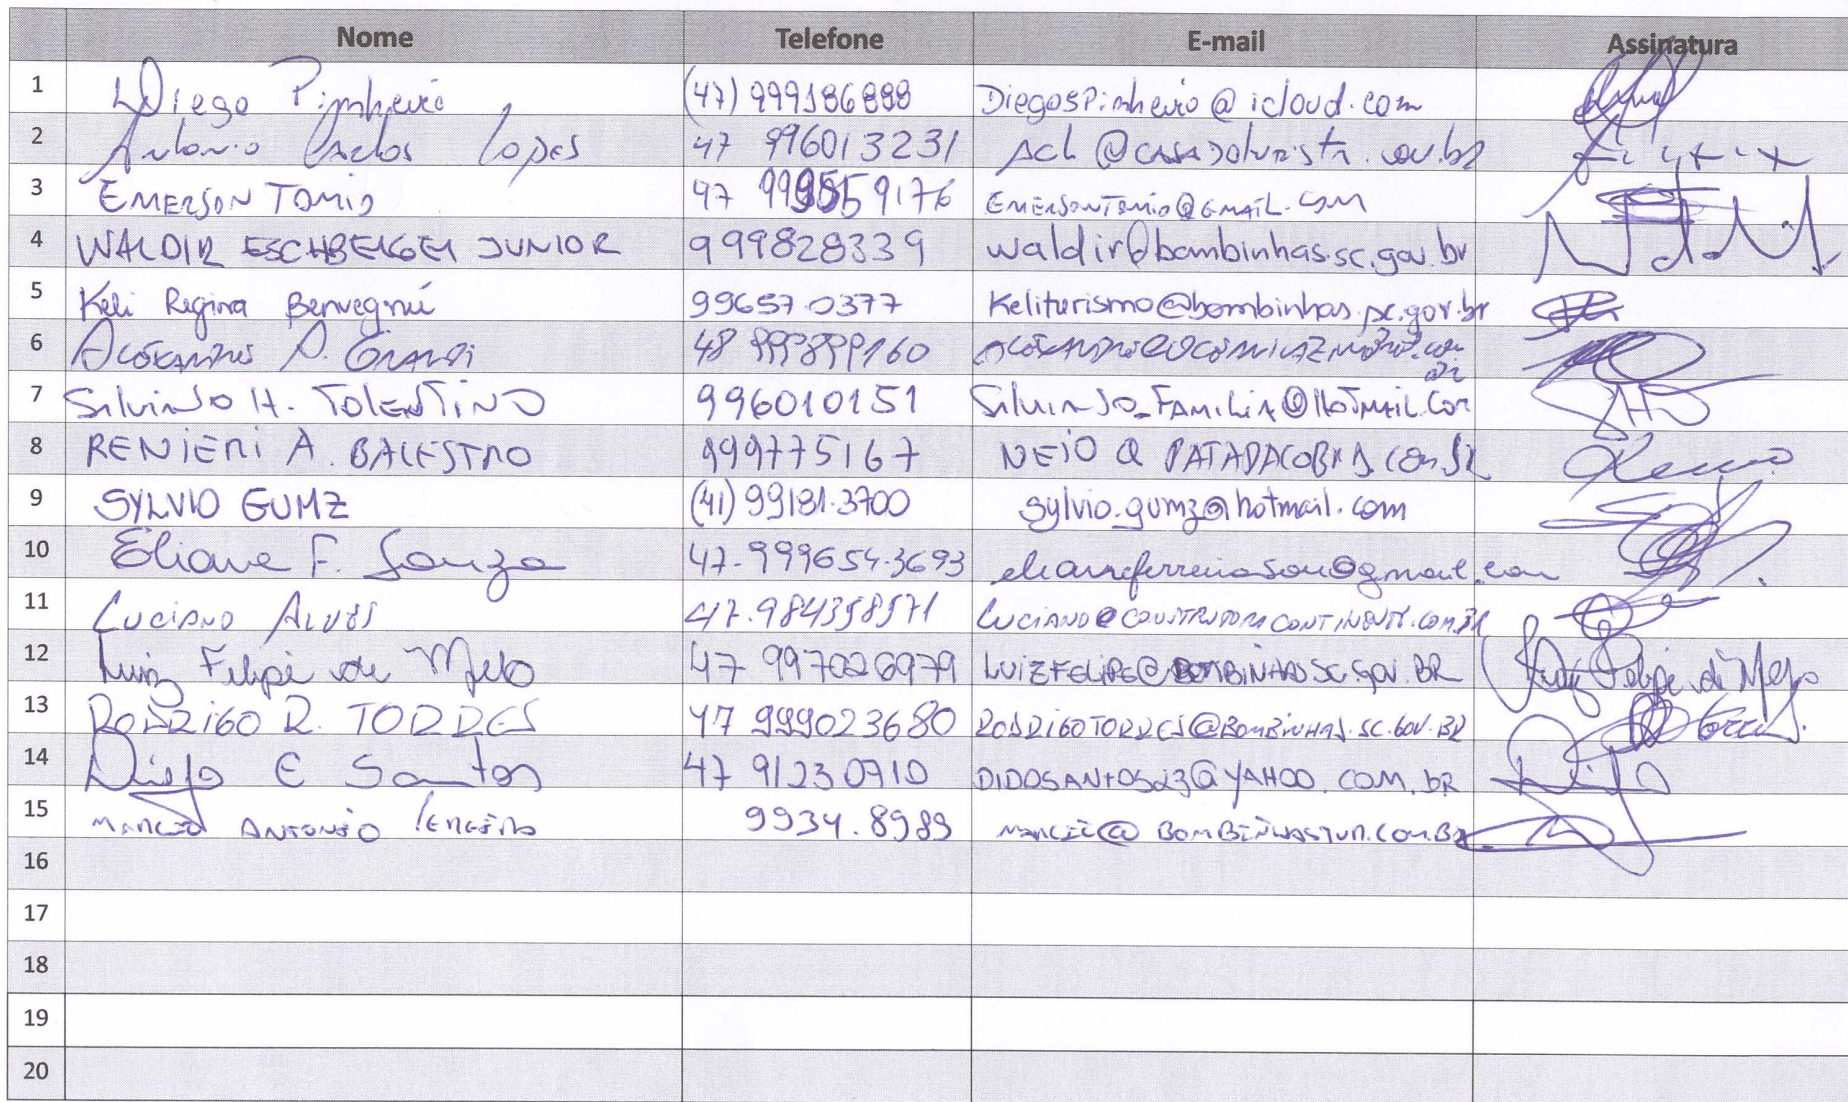 Nome Telefone E-mail Assinatura
1 Diego Pinheiro (47) 999186888 DiegosPinheiro@icloud.com
2 Antonio Carlos Lopes 47 996013231 acl@casadoturista.com.br
3 EMERSON TOMIO 47 999559176 EMERSONTOMIO@GMAIL.COM
4 WALDIR ESCHBERGER JUNIOR 999828339 waldir@bombinhas.sc.gov.br
5 Keli Regina Benvegnú 99657.0377 Keliturismo@bombinhas.sc.gov.br
6 48 999899160
7 Silvindo H. TOLENTINO 996010151 Silvindo_FAMILIA@HOTMAIL.COM
8 RENIERI A. BALESTRO 999775167 NEIO @ PATADACOBRA.COM.BR
9 SYLVIO GUMZ (41) 99181.3700 sylvio.gumz@hotmail.com
10 Eliane F. Souza 47-999654-3693 elianeferreirasou@gmail.com
11 LUCIANO ALVES 47.984358571 LUCIANO@CONSTRUTORACONTINENTE.COM.BR
12 Luiz Felipe de Melo 47 997026979 LUIZFELIPE@BOMBINHAS.SC.GOV.BR Luiz Felipe de Melo
13 RODRIGO R. TORRES 47 999023680 RODRIGOTORRES@BOMBINHAS.SC.GOV.BR
14 E Santos 47 91230710 DIDOSANTOS23@YAHOO.COM.BR
15 ANTONIO 9934.8989 @BOMBINHASTUR.COM.BR
16
17
18
19
20